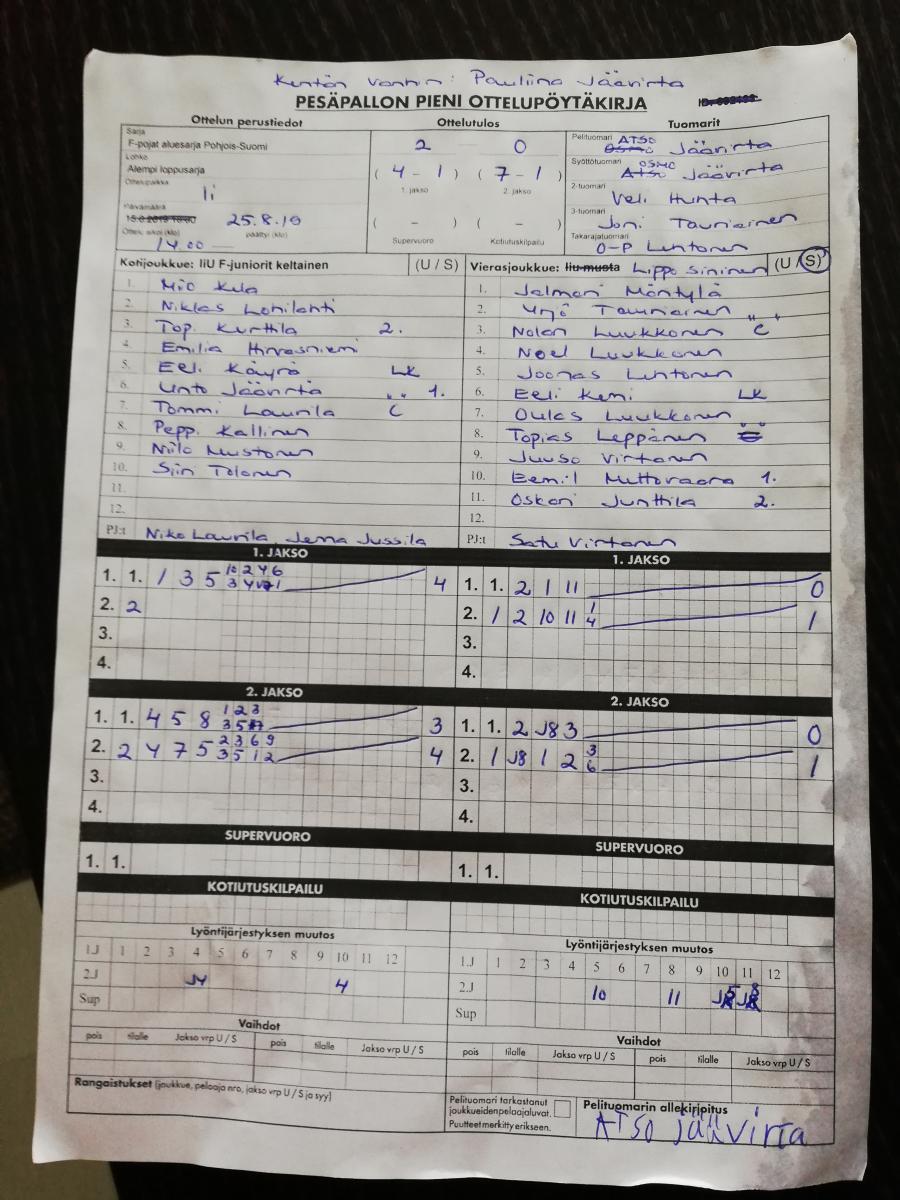 Kentän vanhin: Pauliina Jäävirta
PESÄPALLON PIENI OTTELUPÖYTÄKIRJA
Ottelun perustiedot Ottelutulos Tuomarit
Sarja
F-pojat aluesarja Pohjois-Suomi
Lohko
Alempi loppusarja
Ottelupaikka
Ii
Päivämäärä
25.8.19
Ottelu alkoi (klo) päättyi (klo)
14.00
2 0
(4 - 1) (7 - 1)
1. jakso 2. jakso
( - ) ( - )
Supervuoro Kotiutuskilpailu
Pelituomari ATSO Jäävirta
Syöttötuomari OSMO Jäävirta
2-tuomari
Veli Hunta
3-tuomari
Joni Tauriainen
Takarajatuomari
O-P Lehtonen
Kotijoukkue: IiU F-juniorit keltainen (U / S)
1. Mio Kela
2. Niklas Lohilahti
3. Top. Kurttila 2.
4. Emilia Hirvasniemi
5. Eeli Käyrä LK
6. Unto Jäävirta " 1.
7. Tommi Laurila C
8. Pepp. Kallinen
9. Niilo Mustonen
10. Siin Tolonen
11.
12.
PJ:t Niko Laurila, Jenna Jussila
Vierasjoukkue: Iiu musta Lippo sininen (U / S)
1. Jalmari Mäntylä
2. Yrjö Tauriainen "
3. Nolan Luukkonen C
4. Noel Luukkonen
5. Joonas Lehtonen
6. Eeli Kemi LK
7. Oulas Luukkonen
8. Topias Leppänen
9. Juuso Virtanen
10. Eemil Muttovaara 1.
11. Oskari Junttila 2.
12.
PJ:t Satu Virtanen
1. JAKSO
1. 1. 1 3 5 10 2 4 6 4
2. 2
3.
4.
1. JAKSO
1. 1. 2 1 11 0
2. 1 2 10 11 1 4 1
3.
4.
2. JAKSO
1. 1. 4 5 8 1 2 3 3 5 3
2. 2 4 7 5 2 3 6 9 3 5 1 2 4
3.
4.
2. JAKSO
1. 1. 2 J8 3 0
2. 1 J8 1 2 3 6 1
3.
4.
SUPERVUORO
1. 1.
SUPERVUORO
1. 1.
KOTIUTUSKILPAILU
KOTIUTUSKILPAILU
Lyöntijärjestyksen muutos
1.J 1 2 3 4 5 6 7 8 9 10 11 12
2.J J4 4
Sup
Lyöntijärjestyksen muutos
1.J 1 2 3 4 5 6 7 8 9 10 11 12
2.J 10 11
Sup
Vaihdot
pois tilalle Jakso vrp U / S pois tilalle Jakso vrp U / S
Vaihdot
pois tilalle Jakso vrp U / S pois tilalle Jakso vrp U / S
Rangaistukset (joukkue, pelaaja nro, jakso vrp U / S ja syy)
Pelituomari tarkastanut
joukkueidenpelaajaluvat.
Puutteet merkitty erikseen.
Pelituomarin allekirjoitus
ATSO Jäävirta